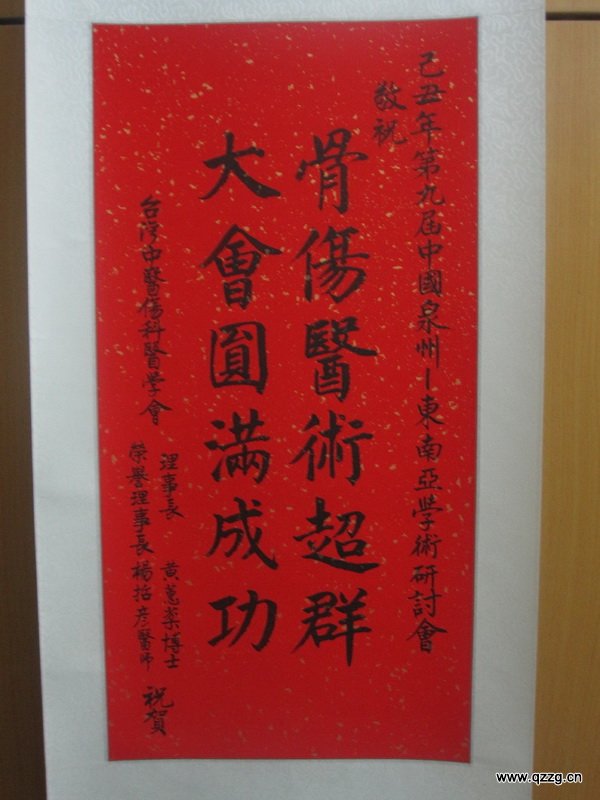 己丑年第九届中國泉州－東南亞學術研討會
敬祝
骨傷醫術超群
大會圓滿成功
台灣中醫傷科醫学會
理事長 黃蕙棻博士
榮譽理事長 楊拓彥醫师
祝賀
www.qzzg.cn